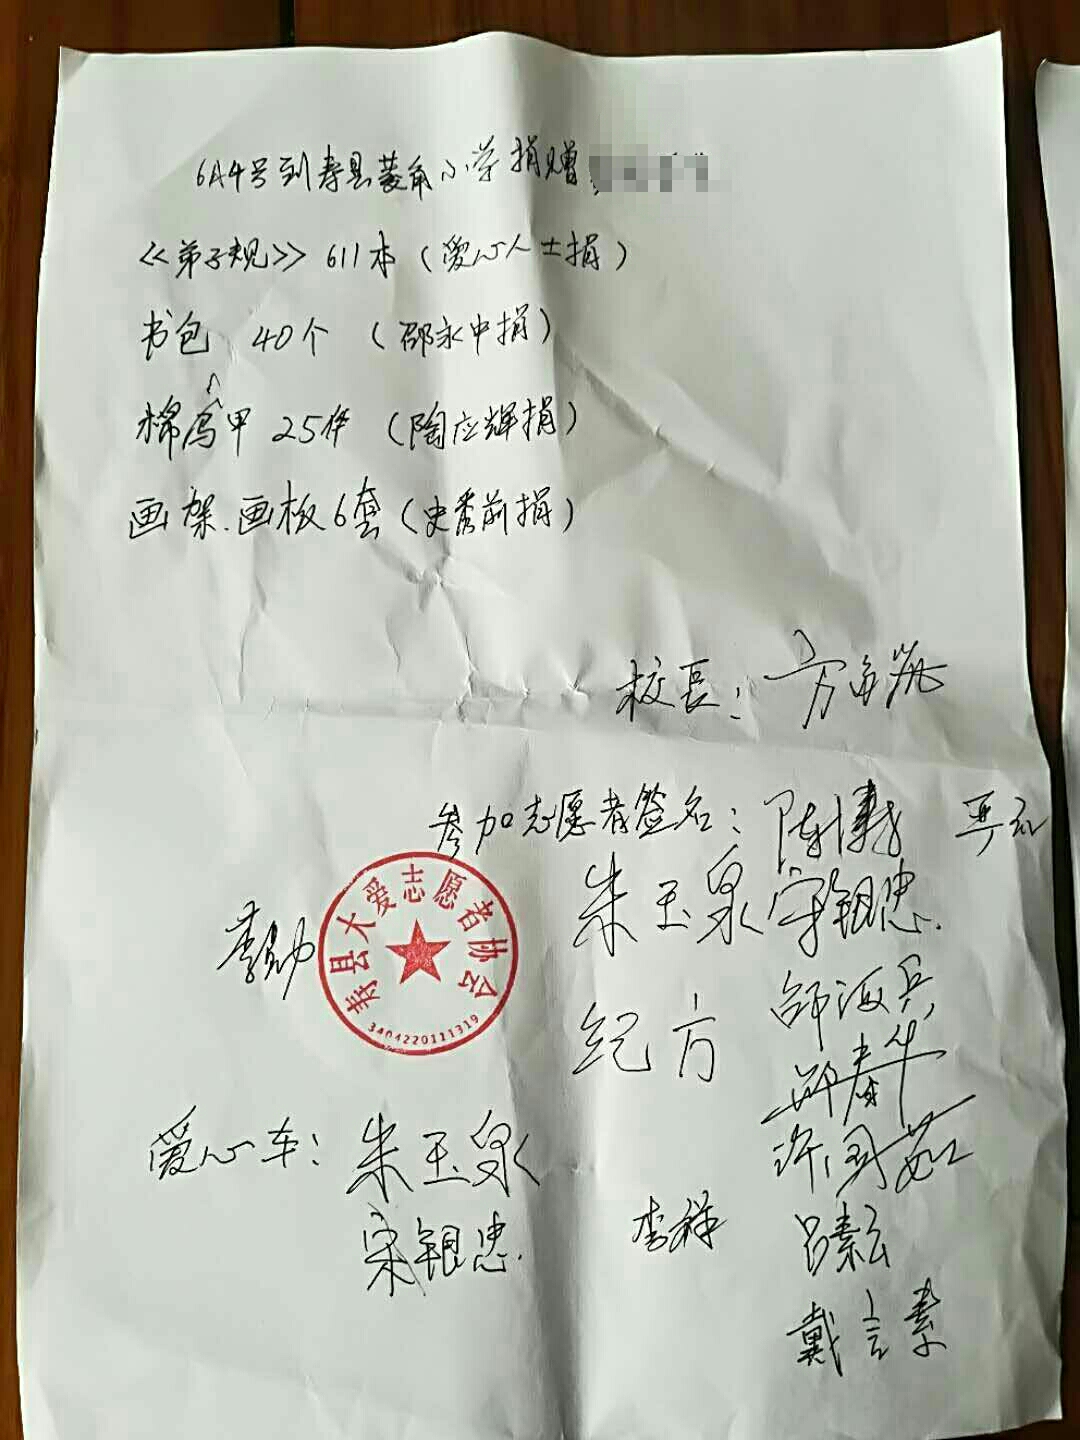 6月4号到寿县菱角小学捐赠
《弟子规》611本(爱心人士捐)
书包 40个 (邵永中捐)
棉马甲 25件 (陶应辉捐)
画架.画板6套(史秀前捐)
校长:方
参加志愿者签名:陈
朱玉泉 宋银忠.
李勋
寿县大爱志愿者协会
3404220111319
纪方
邵海兵
郑春华
许国茹
爱心车:朱玉泉
宋银忠.
李祥
吕素云
戴言素